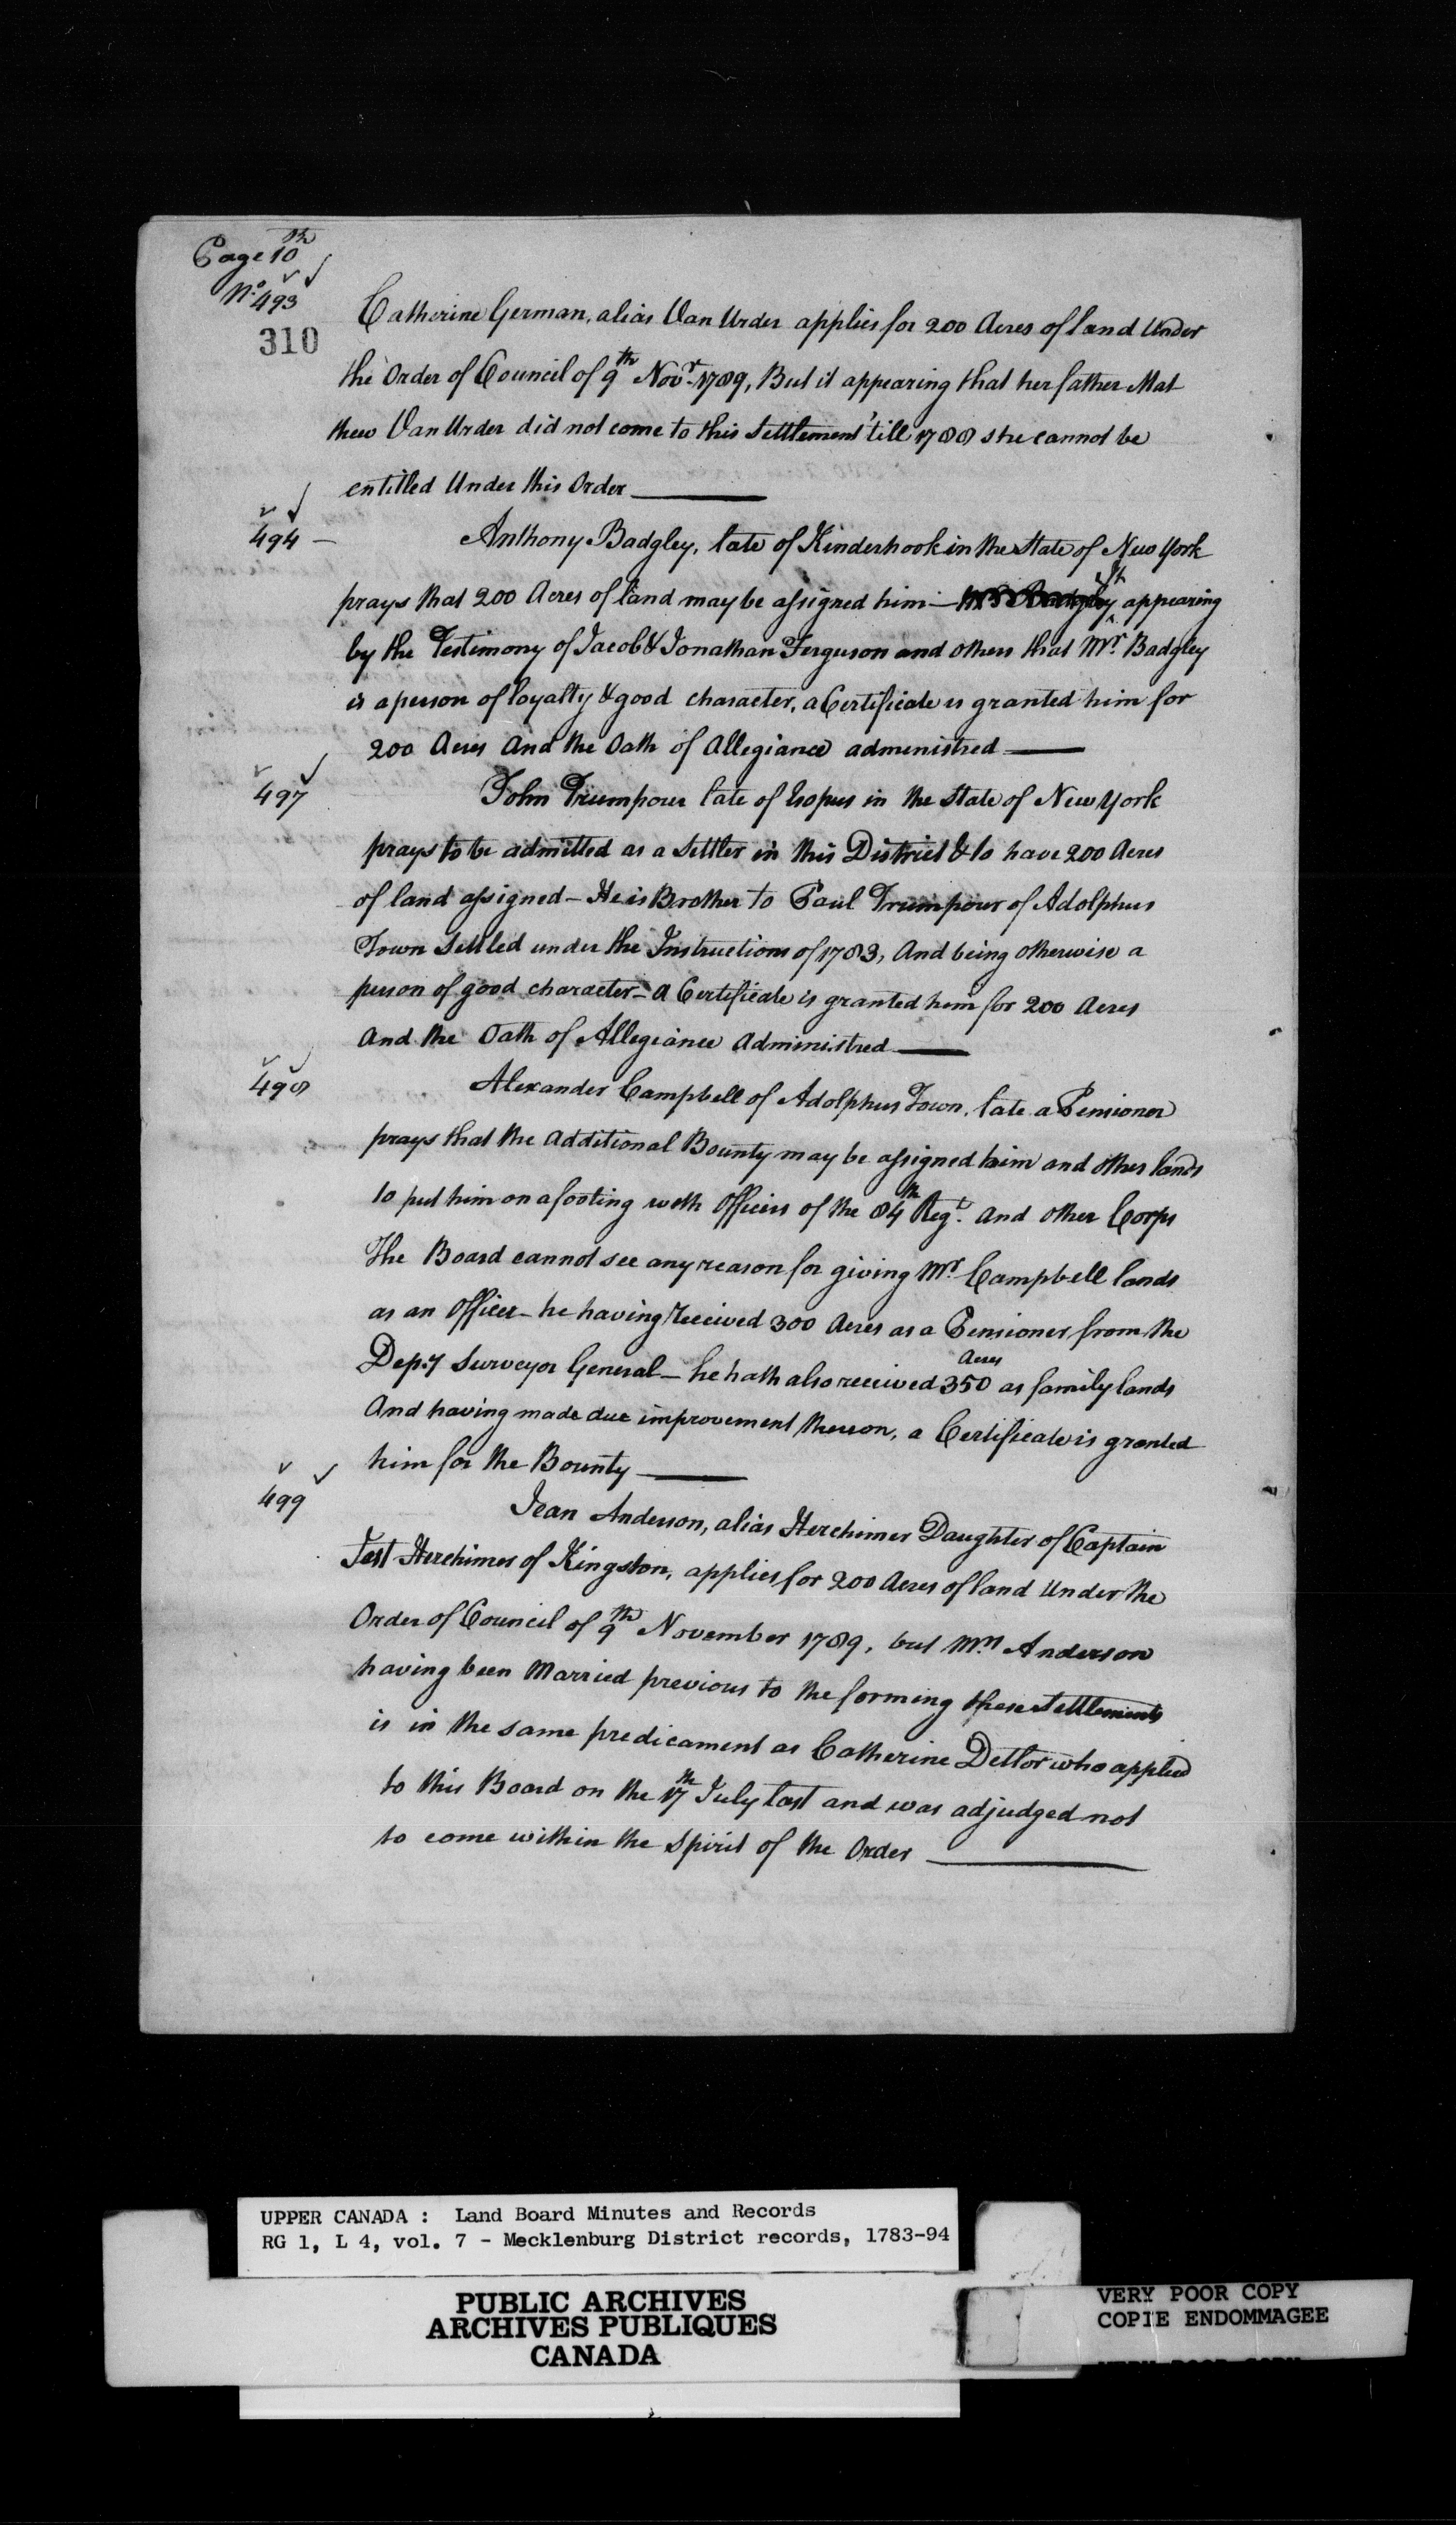 Page 10th
No. 493
310
Catherine German, alias Van Urder applies for 200 Acres of land Under
the Order of Council of 9th Novr. 1789, But it appearing that her father Mat
thew Van Urder did not come to this Settlement 'till 1788 she cannot be
entitled Under this Order
494 —
Anthony Badgley, late of Kinderhook in the State of New York
prays that 200 Acres of land may be assigned him — It appearing
by the Testimony of Jacob & Jonathan Ferguson and others that Mr. Badgley
is a person of loyalty & good character, a Certificate is granted him for
200 Acres And the Oath of Allegiance administred
497
John Trumpour late of Esopus in the State of New York
prays to be admitted as a Settler in this District & to have 200 Acres
of land assigned — He is Brother to Paul Trumpour of Adolphus
Town Settled under the Instructions of 1783, And being otherwise a
person of good character — A Certificate is granted him for 200 Acres
And the Oath of Allegiance Administred
498
Alexander Campbell of Adolphus Town, late a Pensioner
prays that the Additional Bounty may be assigned him and other lands
to put him on a footing with Officers of the 84th Regt. And other Corps
The Board cannot see any reason for giving Mr. Campbell lands
as an Officer — he having received 300 Acres as a Pensioner from the
Depy Surveyor General — he hath also received 350 Acres as family lands
And having made due improvement thereon, a Certificate is granted
him for the Bounty
499
Jean Anderson, alias Herchimer Daughter of Captain
Jost Herchimer of Kingston, applies for 200 Acres of land Under the
Order of Council of 9th November 1789, but Mrs Anderson
having been Married previous to the forming these Settlements
is in the same predicament as Catherine Detlor who applied
to this Board on the 17th July last and was adjudged not
to come within the Spirit of the Order
UPPER CANADA : Land Board Minutes and Records
RG 1, L 4, vol. 7 - Mecklenburg District records, 1783-94
PUBLIC ARCHIVES
ARCHIVES PUBLIQUES
CANADA
VERY POOR COPY
COPIE ENDOMMAGEE